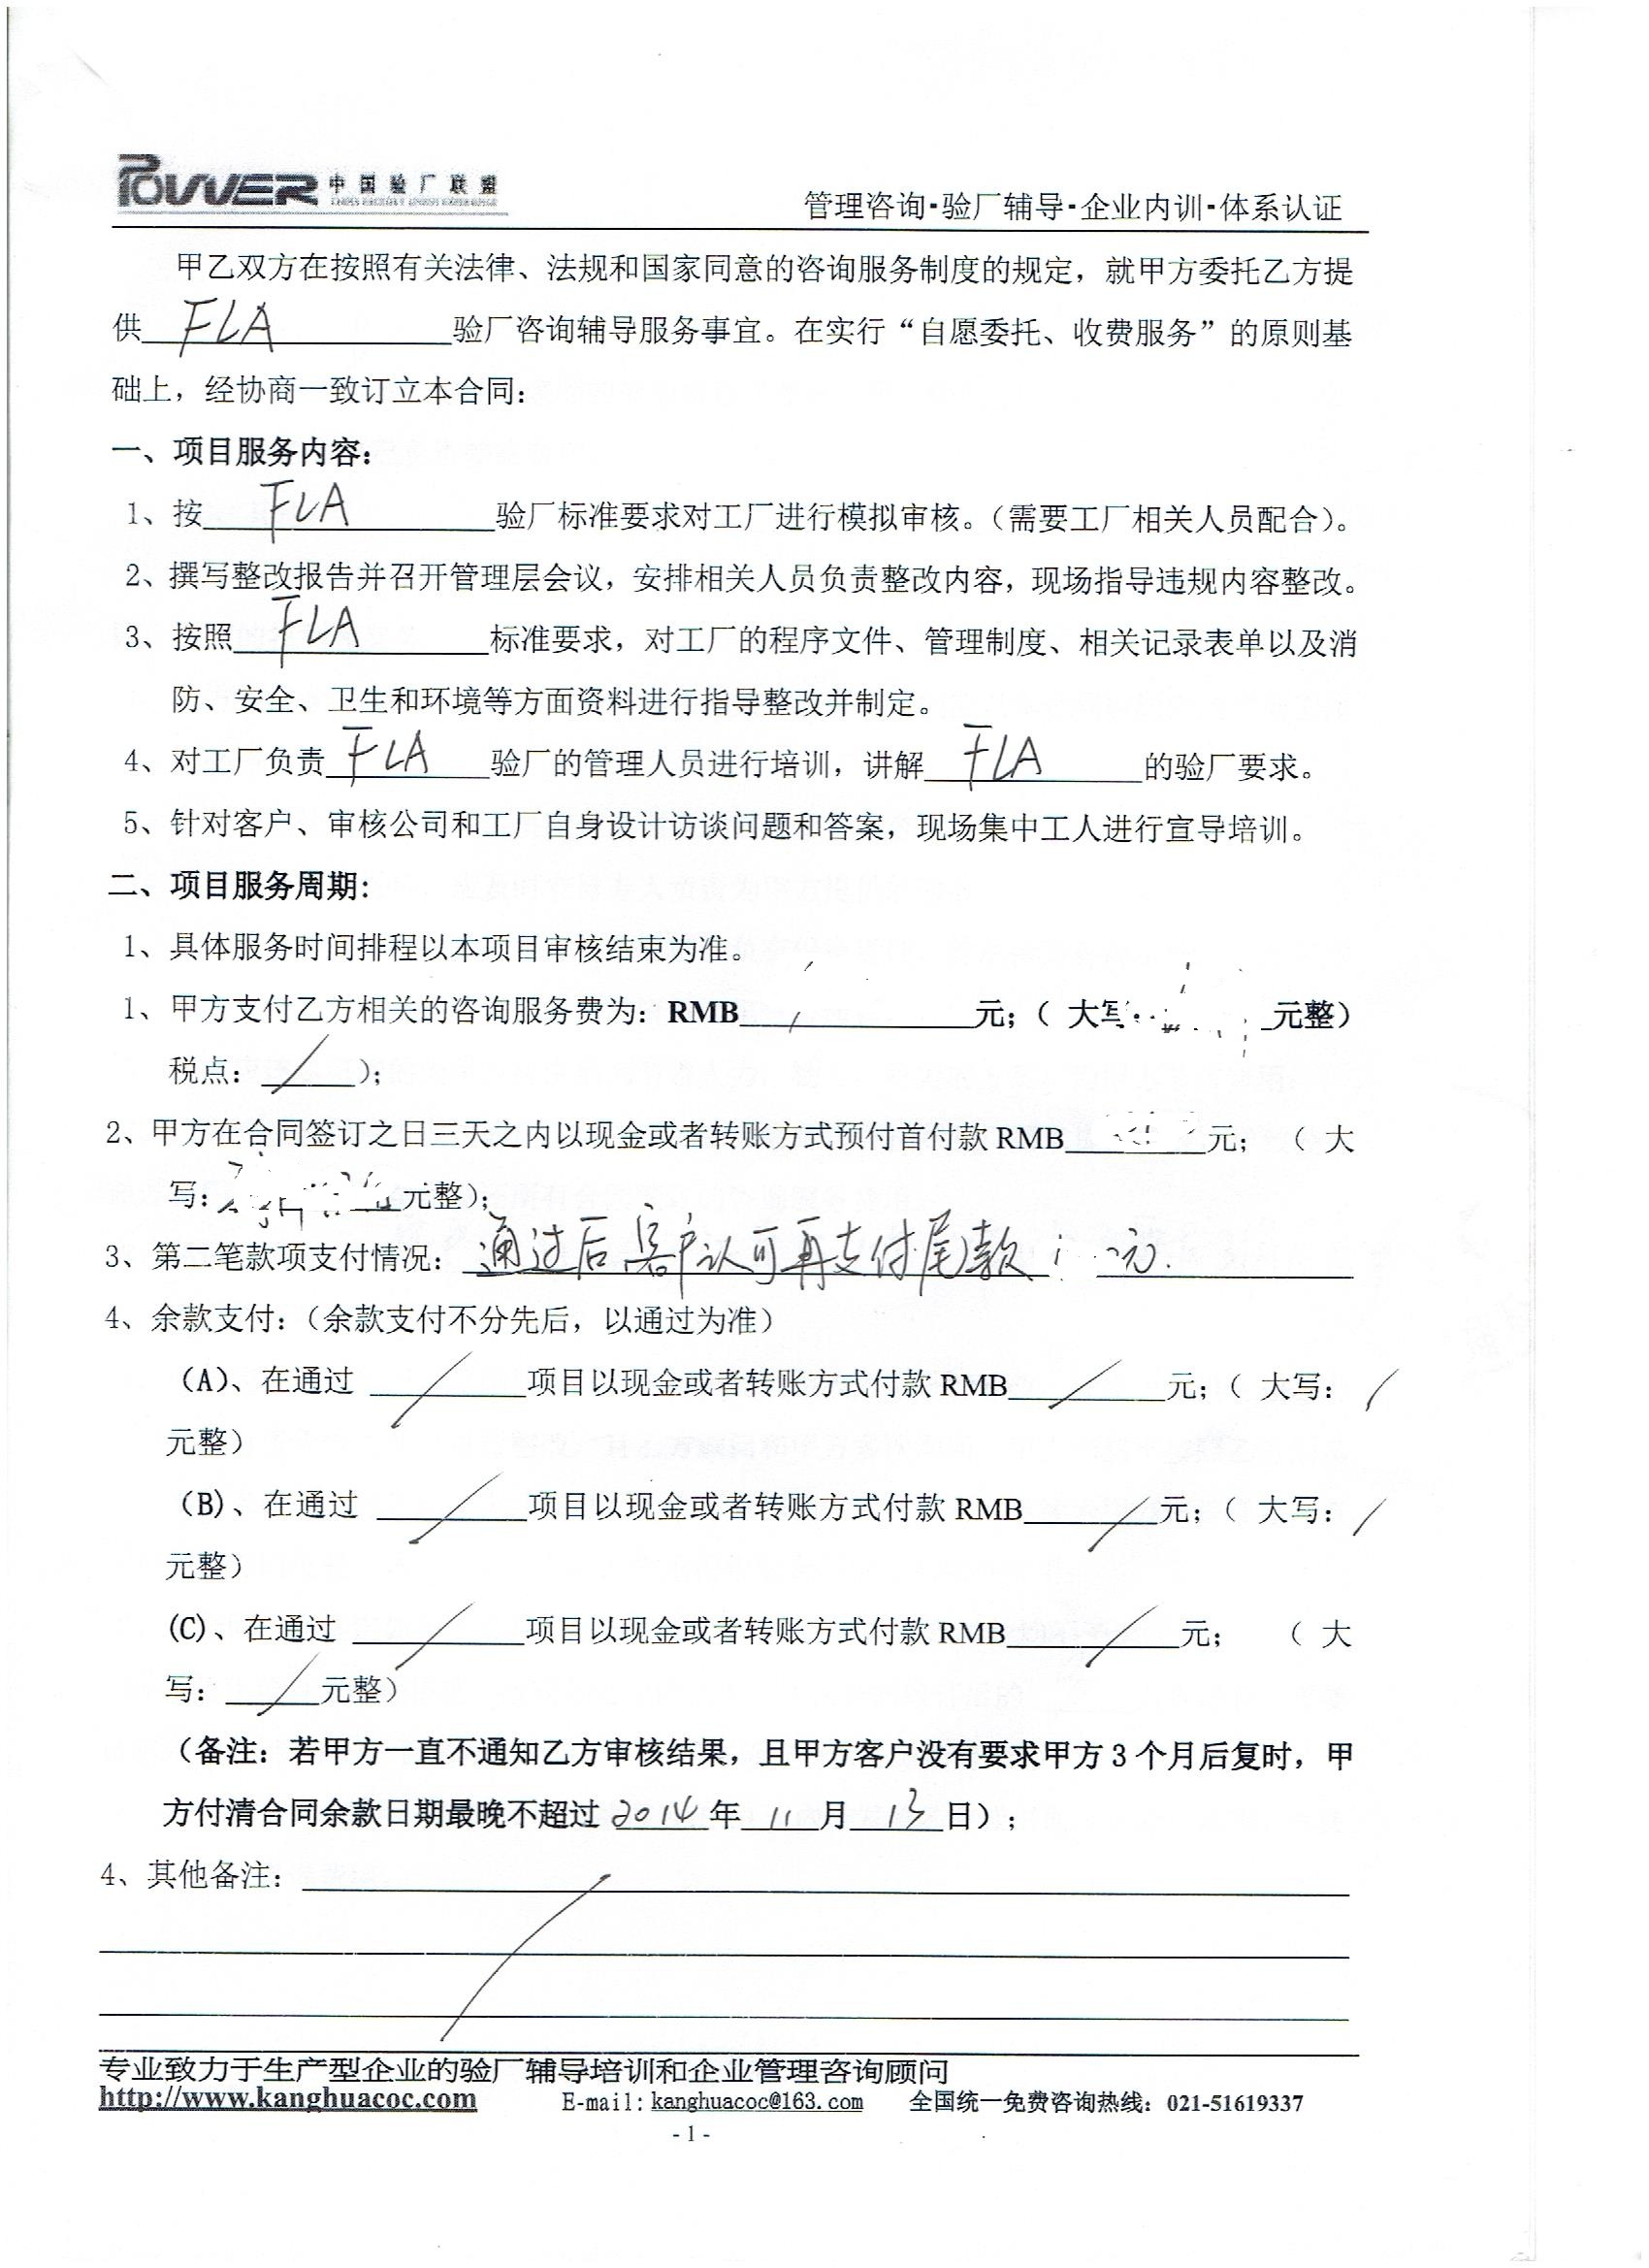 POWER 中国验厂联盟
管理咨询·验厂辅导·企业内训·体系认证
甲乙双方在按照有关法律、法规和国家同意的咨询服务制度的规定，就甲方委托乙方提
供 FLA 验厂咨询辅导服务事宜。在实行“自愿委托、收费服务”的原则基
础上，经协商一致订立本合同：
一、项目服务内容：
1、按 FLA 验厂标准要求对工厂进行模拟审核。（需要工厂相关人员配合）。
2、撰写整改报告并召开管理层会议，安排相关人员负责整改内容，现场指导违规内容整改。
3、按照 FLA 标准要求，对工厂的程序文件、管理制度、相关记录表单以及消
防、安全、卫生和环境等方面资料进行指导整改并制定。
4、对工厂负责 FLA 验厂的管理人员进行培训，讲解 FLA 的验厂要求。
5、针对客户、审核公司和工厂自身设计访谈问题和答案，现场集中工人进行宣导培训。
二、项目服务周期：
1、具体服务时间排程以本项目审核结束为准。
1、甲方支付乙方相关的咨询服务费为：RMB 元；（ 大写： 元整）
税点： / ）；
2、甲方在合同签订之日三天之内以现金或者转账方式预付首付款 RMB 元； （ 大
写： 元整）；
3、第二笔款项支付情况： 通过后客户认可再支付尾款 元.
4、余款支付：（余款支付不分先后，以通过为准）
（A）、在通过 / 项目以现金或者转账方式付款 RMB / 元；（ 大写： /
元整）
（B）、在通过 / 项目以现金或者转账方式付款 RMB / 元；（ 大写： /
元整）
(C)、在通过 / 项目以现金或者转账方式付款 RMB / 元； （ 大
写： / 元整）
（备注：若甲方一直不通知乙方审核结果，且甲方客户没有要求甲方 3 个月后复时，甲
方付清合同余款日期最晚不超过 2014 年 11 月 13 日）；
4、其他备注： /
专业致力于生产型企业的验厂辅导培训和企业管理咨询顾问
http://www.kanghuacoc.com E-mail: kanghuacoc@163.com 全国统一免费咨询热线：021-51619337
- 1 -